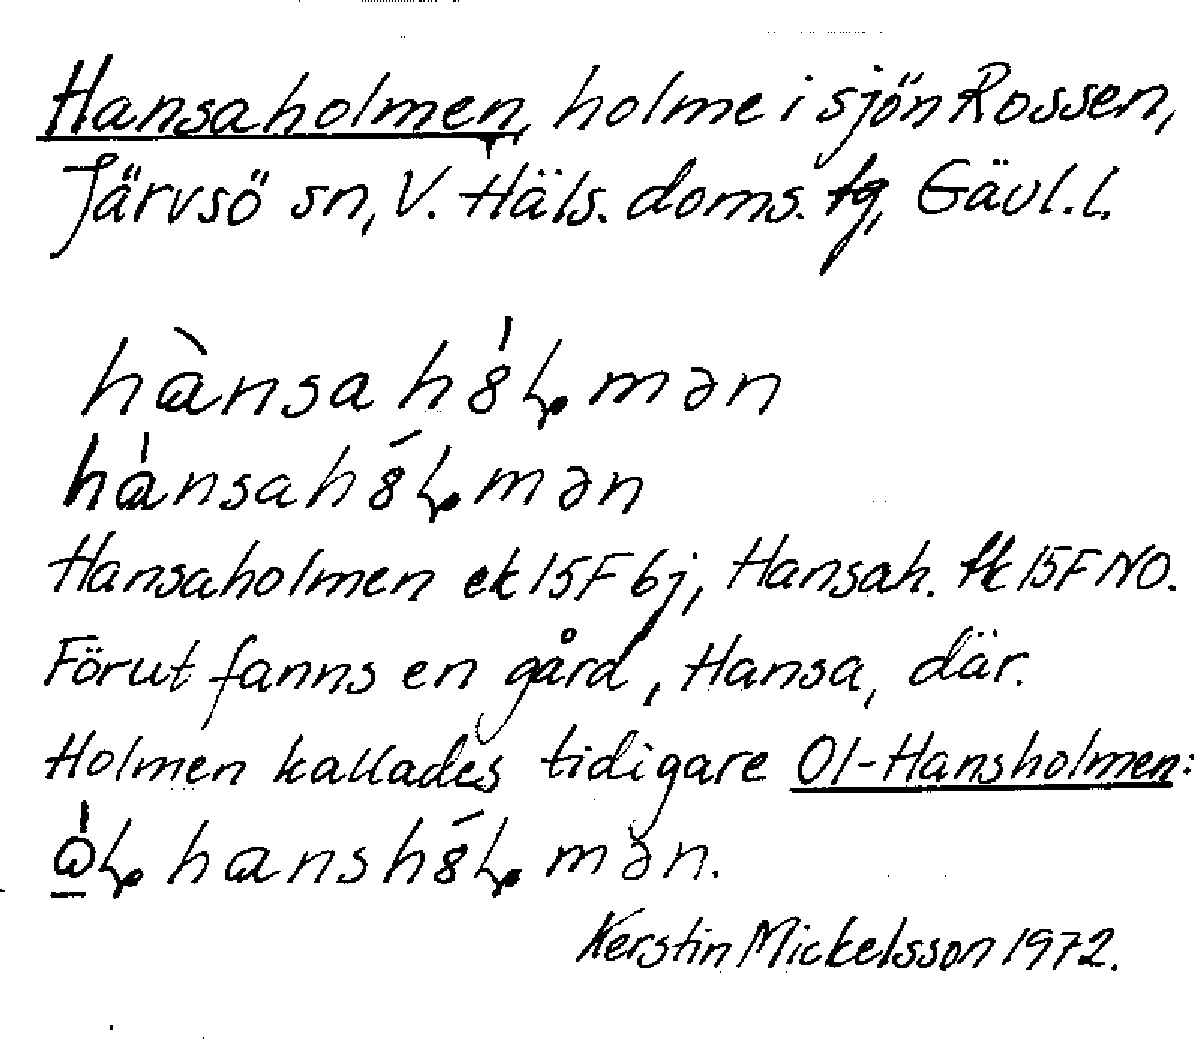 Hansaholmen, holme i sjön Rossen,
Järvsö sn, V. Häls. doms. tg, Gävl.l.
hànsahȣ́ɽmən
hànsahȣ́ɽmən
Hansaholmen ek 15F 6j, Hansah. tk 15F NO.
Förut fanns en gård, Hansa, där.
Holmen kallades tidigare Ol-Hansholmen:
hanshȣ́ɽmən.
Kerstin Mickelsson 1972.